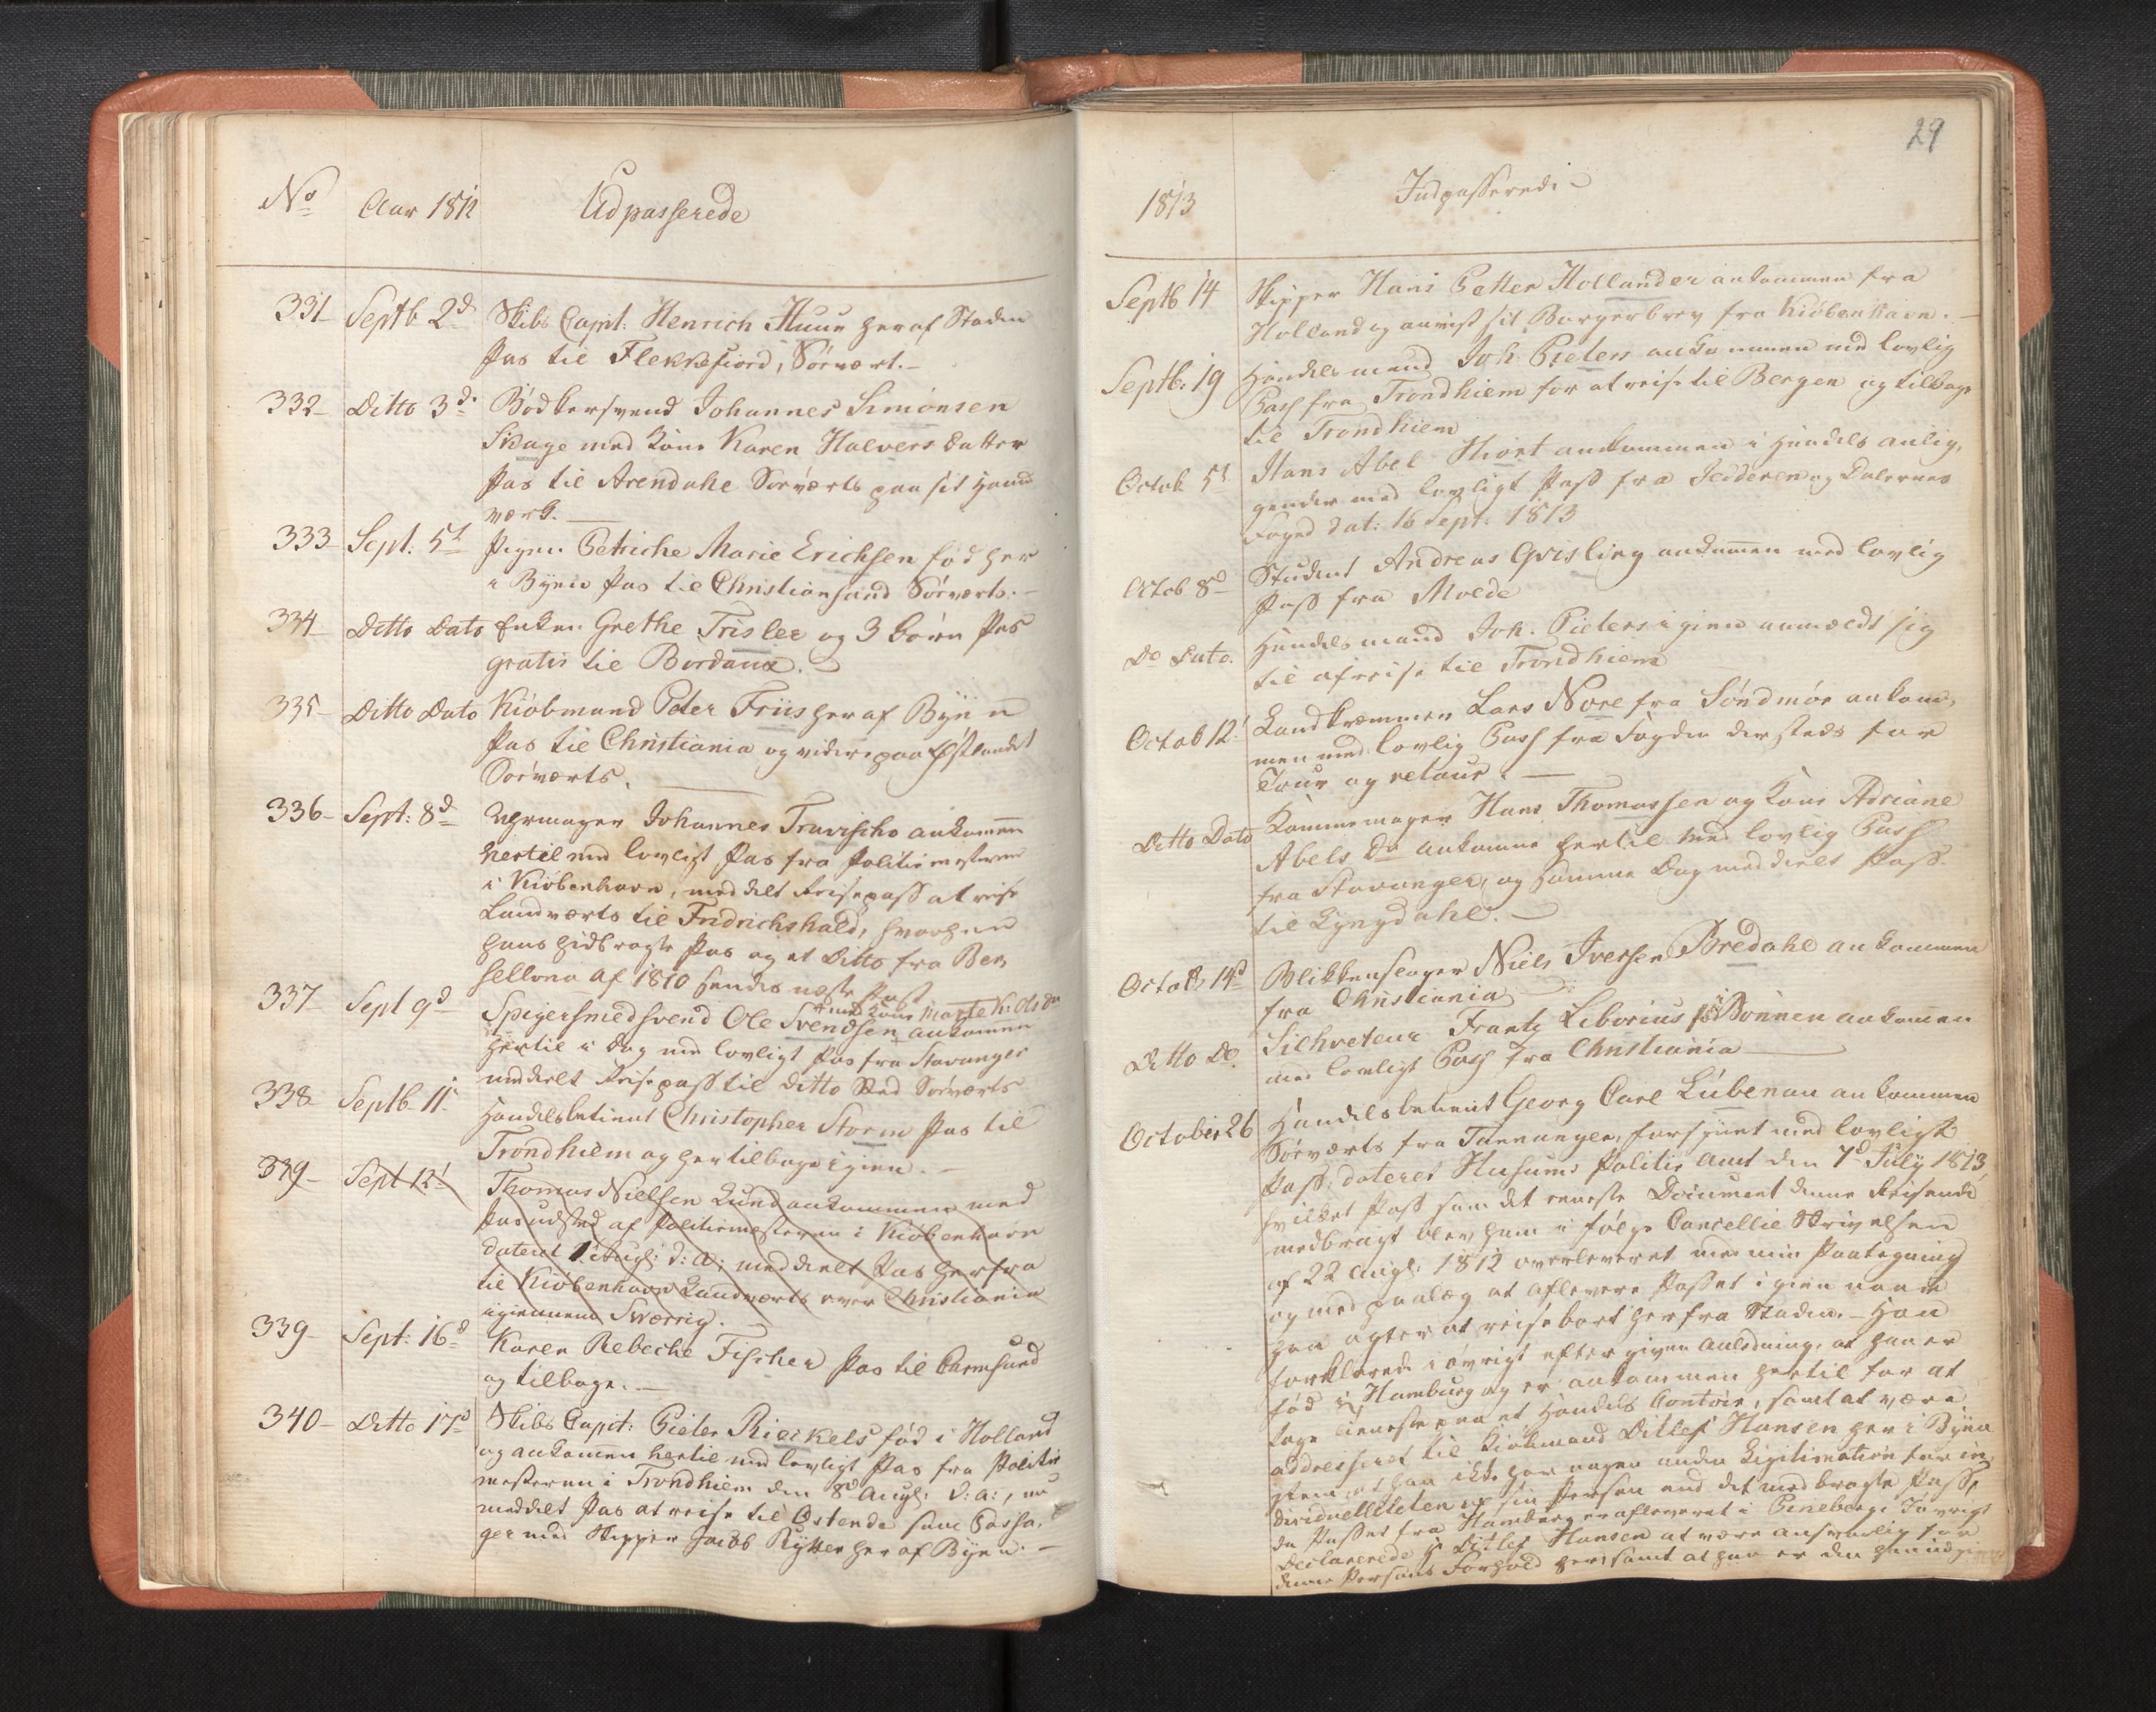 No Aar 1812 Udpasserede
331 Septb 2d Skibs Capit: Henrich Huun her af Staden
Pas til Flekkefiord, Sörvært.
332 Ditto 3d Bödkersvend Johannes Simonsen
Skage med Kone Karen Halvers datter
Pas til Arendahl Sörværts paa sit Haand
værk.
333 Sept: 5t Pigen Petriche Marie Erichsen föd her
i Byen Pas til Christiansand Sörværts.
334 Ditto Dato Enken Grethe Trisler og 3 börn Pas
gratis til
335 Ditto Dato Kiöbmand Peter Friis her af Byen
Pas til Christiania og videre paa Östlandet
Sörværts.
336 Sept: 8d Johannes ankommen
hertil med lovligt Pas fra Politiemesteren
i Kiöbenhavn, meddelt Reisepass at reise
Landværts til Fridrichshald, hvorhen
hans hidbragte Pas og et Ditto fra
af 1810 sendes næste Post
337 Sept 9d Spigersmedsvend Ole Svendsen + ankommen
+ med Kone Marte K: Ols Dr
hertil i Dag med lovligt Pas fra Stavanger
meddelt Reisepass til ditto Sted Sörværts
338 Septb 11 Handelsbetient Christopher Storm Pas til
Trondhiem og her tilbage igien.
339 Sept 12t Thomas Nielsen Lund ankommen med
Pas udsted af Politiemesteren i Kiöbenhavn
dateret 1 Augs: d: A: meddeelt Pas herfra
til Kiöbenhavn Landværts over Christiania
igiennem Sværrig.
339 Sept: 16d Karen Rebeche Fischer Pas til Carmsund
og tilbage.
340 Ditto 17d Skibs Capit: Pieter Rieckels föd i Holland
og ankommen hertil med lovligt Pas fra Politie
mesteren i Trondhiem den 8d Augs: d: a:, nu
meddelt Pas at reise til Ostende som Passa-
ger med Skipper Jacob Rytter her af Byen.
29
1813 Indpasserede
Septb 14 Skipper Hans Petter Hollander ankommen fra
Holland og anviist sit Borgerbrev fra Kiöbenhavn.
Septb: 19 Handelsmand Joh: Pieters ankommen med lovlig
Pass fra Trondhiem for at reise til Bergen og tilbage
til Trondhiem
Octob 5t Hans Abel Hiort ankommen i Handels anlig-
gender med lovligt Pass fra Jedderen og Dalernes
Foged dat: 16 Sept: 1813
Octob 8d Student Andreas Qvisling ankommen med lovlig
Pass fra Molde
Do Dato. Handelsmand Joh. Pieters igien anmeldt sig
til afreise til Trondhiem
Octob 12t Landkræmmer Lars Nore fra Söndmör ankom-
men med lovlig Pass fra Fogden dersteds for
Tour og retour.
Ditto Dato Kammemager Hans Thomassen og Kone Adriane
Abels Dr ankomne hertil med lovlig Pass
fra Stavanger, og samme Dag meddeelt Pass
til Lyngdahl.
Octob, 14d Blikkenslager Niels Iversen Bredahl ankommen
fra Christiania
Ditto Do Silhveteur Frantz Liborius ankommen
med lovligt Pass fra Christiania
October 26 Handelsbetient Georg Carl Lübenau ankommen
Sörværts fra Tananger, forsynet med lovligt
Pass, dateret Husums Politie Amt den 7d July 1813,
hvilket Pass som det eeneste Document denne Reisende
medbragt blev ham i fölge Cancellie Skrivelsen
af 22 Augs: 1812 overleveret med min Paategning
og med paalæg at aflevere Passet igien naar
han agter at reise bort herfra Staden. – Han
forklarede i övrigt efter given Anledning, at han er
föd i Hamburg og er ankommen hertil for at
tage tieneste paa et Handels Contoir, samt at være
addresseret til Kiöbmand Ditlef Hansen her i Byen
item, at han ikke har nogen anden Legitimation for in-
dividuelliteten af sin Person end det medbragte Pass,
da Passet fra Hamburg er afleveret i Peneberg. I övrigt
Declarerede Hr Ditlef Hansen at være ansvarlig for
denne Persons Forhold her, samt at han er den